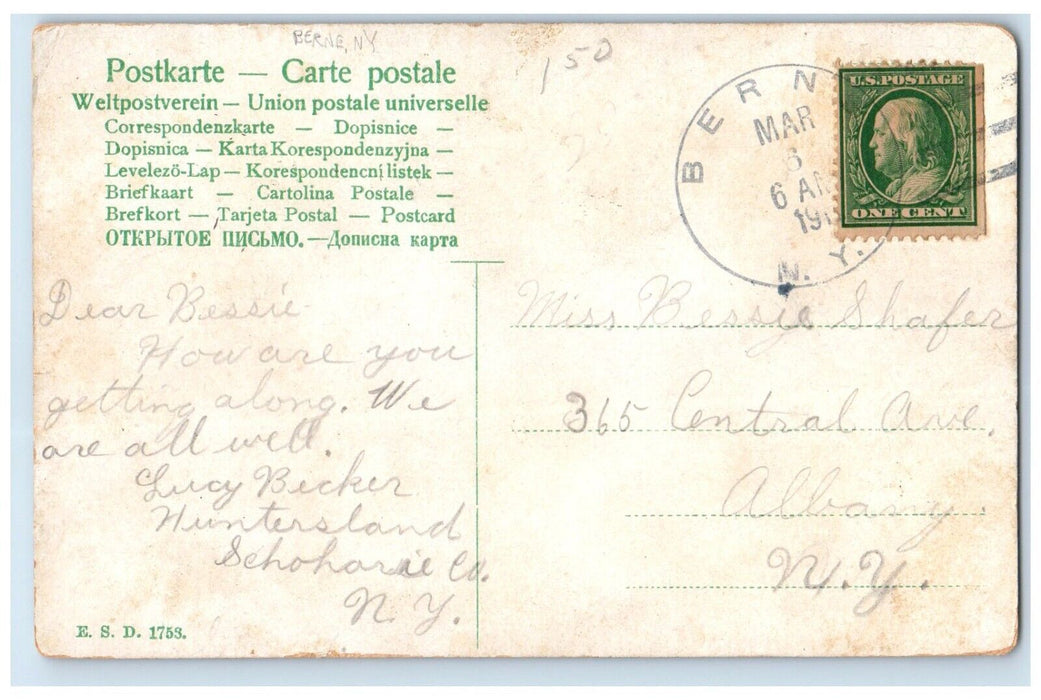 BERNE, NY
150
Postkarte — Carte postale
Weltpostverein — Union postale universelle
Correspondenzkarte — Dopisnice —
Dopisnica — Karta Korespondenzyjna —
Levelező-Lap — Korespondencni listek —
Briefkaart — Cartolina Postale —
Brefkort — Tarjeta Postal — Postcard
ОТКРЫТОЕ ПИСЬМО. — Дописна карта
BERN
MAR
6
6 AM
N. Y.
U.S. POSTAGE
ONE CENT
Dear Bessie
How are you
getting along. We
are all well.
Lucy Becker
Huntersland
Schoharie Co.
N. Y.
Miss Bessie Shafer
365 Central Ave.
Albany.
N.Y.
E. S. D. 1753.